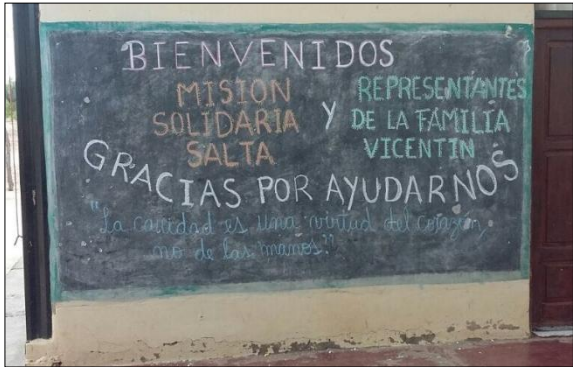 BIENVENIDOS
MISION
SOLIDARIA
SALTA
Y
REPRESENTANTES
DE LA FAMILIA
VICENTIN
GRACIAS POR AYUDARNOS
"La caridad es una virtud del corazón,
no de las manos."